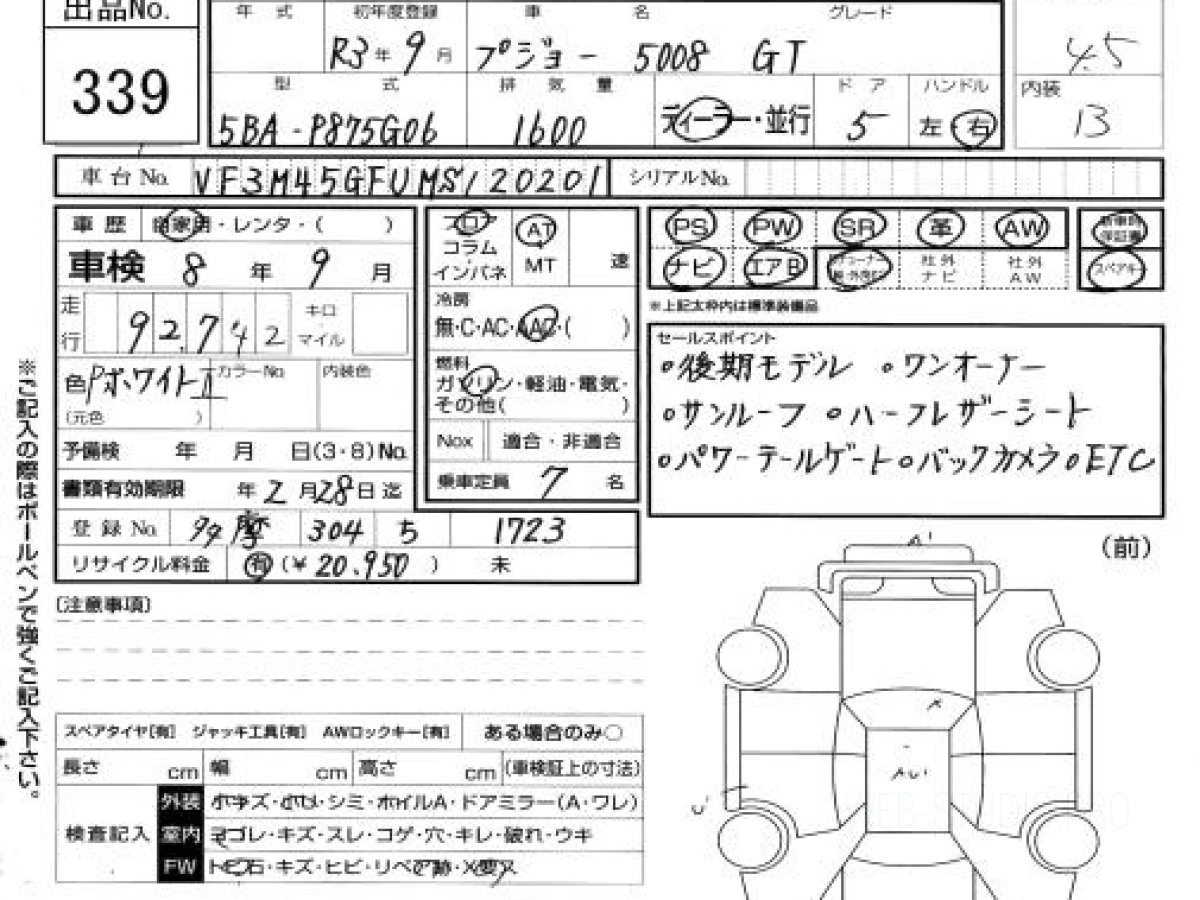 出品No.
339
年 式 初年度登録 車 名 グレード
R3年 9月 プジョー 5008 GT
型 式 排 気 量 ディーラー・並行 ドア ハンドル
5BA-P875G06 1600 5 左 右
4.5
内装
13
車台No. VF3M45GFUMS120201 シリアルNo.
車歴 自家用・レンタ・( )
車検 8 年 9 月
走行 92,742 キロ マイル
色 Pホワイト カラーNo 内装色
(元色 )
予備検 年 月 日(3・8)No.
書類有効期限 年 2 月 28 日迄
登録No. 多摩 304 ち 1723
リサイクル料金 有 (¥ 20,950 ) 未
フロア AT
コラム MT 速
インパネ
冷房
無・C・AC・AAC・( )
燃料
ガソリン・軽油・電気・
その他( )
Nox 適合・非適合
乗車定員 7 名
PS PW SR 革 AW 新車時保証書
ナビ エアB 社外ナビ 社外AW スペアキー
※上記太枠内は標準装備品
セールスポイント
○後期モデル ○ワンオーナー
○サンルーフ ○ハーフレザーシート
○パワーテールゲート○バックカメラ○ETC
[注意事項]
スペアタイヤ[有] ジャッキ工具[有] AWロックキー[有] ある場合のみ○
長さ cm 幅 cm 高さ cm (車検証上の寸法)
検査記入
外装 小キズ・小凹・シミ・ホイルA・ドアミラー(A・ワレ)
室内 ヨゴレ・キズ・スレ・コゲ・穴・キレ・破れ・ウキ
FW トビ石・キズ・ヒビ・リペア跡・X要
(前)
A1
U1
※ご記入の際はボールペンで強くご記入下さい。